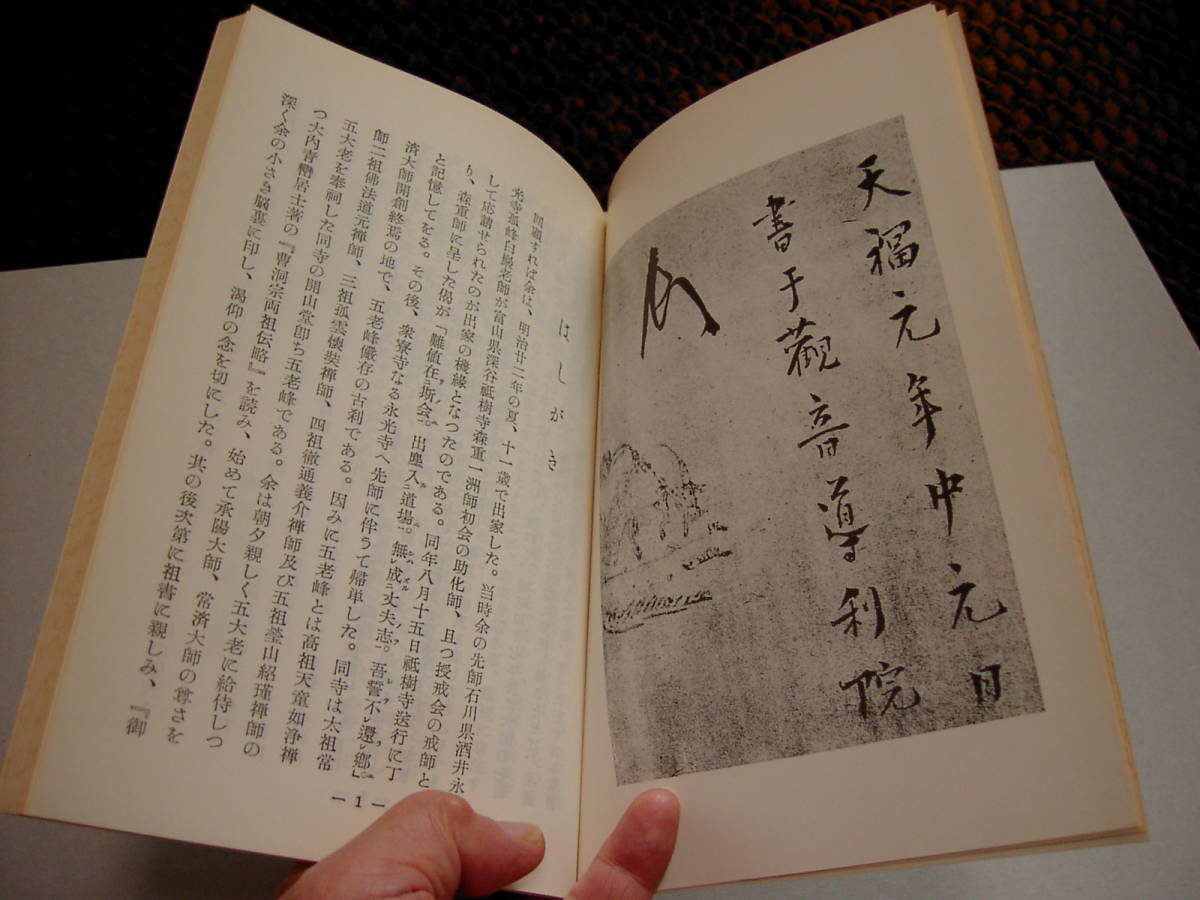 天福元年中元日
書于觀音導利院
はしがき
回顧すれば余は、明治廿二年の夏、十一歳で出家した。当時余の先師石川県酒井永
光寺孤峰白巖老師が富山県深谷祇樹寺森重一洲師初会の助化師、且つ授戒会の戒師と
して応請せられたのが出家の機縁となつたのである。同年八月十五日祇樹寺送行に丁
り、森重師に呈した偈が「難値在斯会。出塵入道場。無成丈夫志。吾誓不還郷」
と記憶してをる。その後、衆寮寺なる永光寺へ先師に伴うて帰単した。同寺は太祖常
済大師開創終焉の地で、五老峰儼存の古刹である。因みに五老峰とは高祖天童如浄禅
師二祖佛法道元禅師、三祖孤雲懐奘禅師、四祖徹通義介禅師及び五祖瑩山紹瑾禅師の
五大老を奉祠した同寺の開山堂卽ち五老峰である。余は朝夕親しく五大老に給侍しつ
つ大内青巒居士著の『曹洞宗両祖伝略』を読み、始めて承陽大師、常済大師の尊さを
深く余の小さき脳裏に印し、渇仰の念を切にした。其の後次第に祖書に親しみ、『御
— 1 —